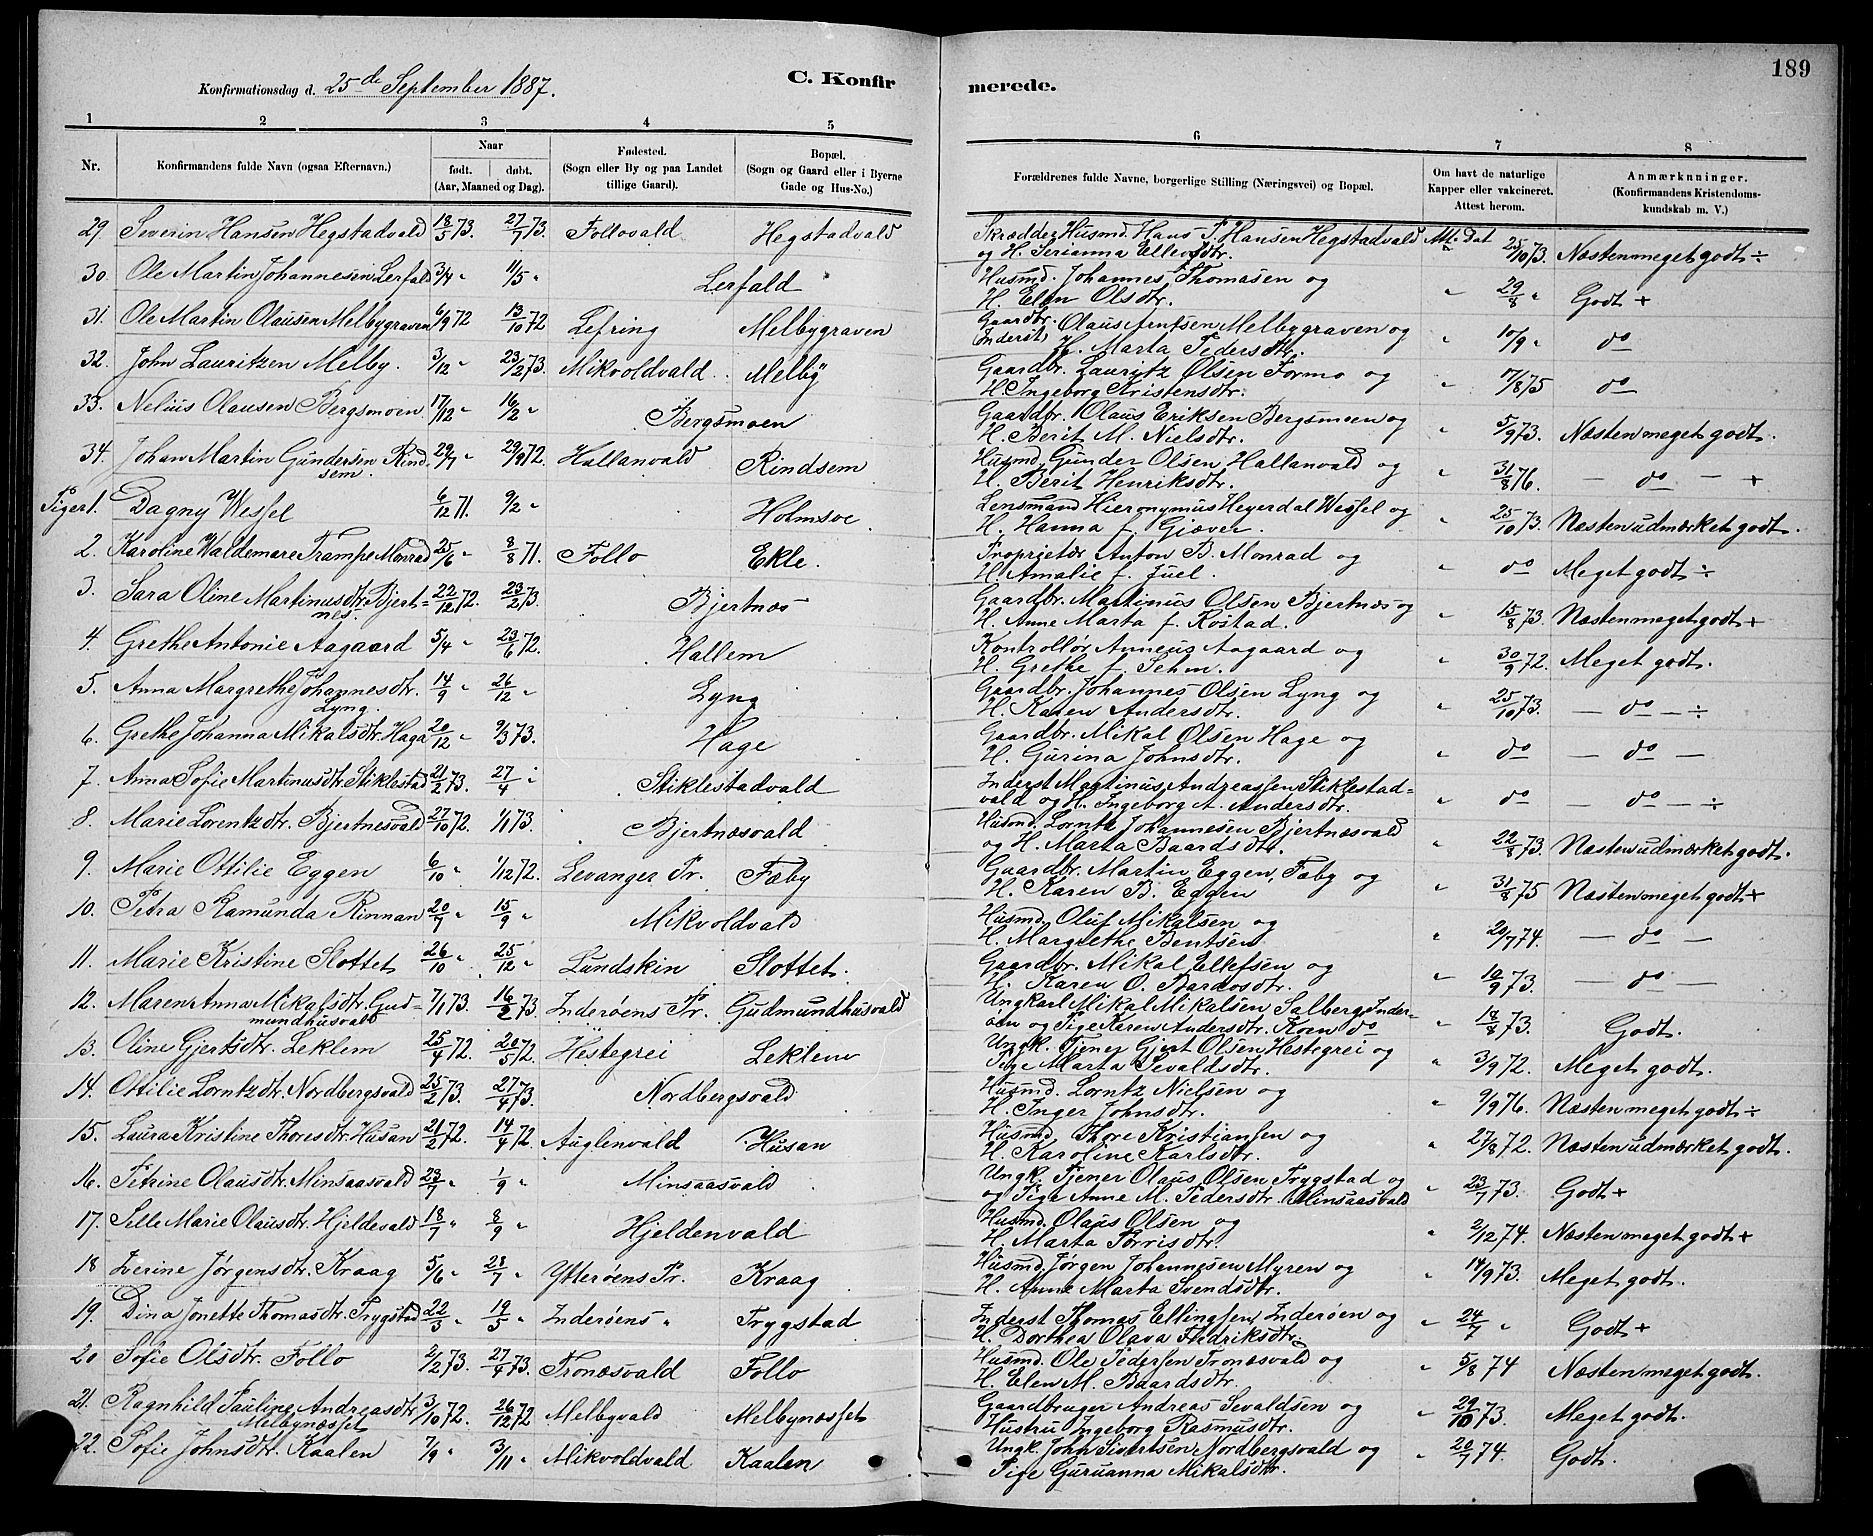 189
Konfirmationsdag d. 25de September 1887. C. Konfirmerede.
1 2 3 4 5 6 7 8
Nr. Konfirmandens fulde Navn (ogsaa Efternavn.) Naar født. døbt. (Aar, Maaned og Dag). Fødested. (Sogn eller By og paa Landet tillige Gaard). Bopæl. (Sogn og Gaard eller i Byerne Gade og Hus-No.) Forældrenes fulde Navne, borgerlige Stilling (Næringsvei) og Bopæl. Om havt de naturlige Kapper eller vakcineret. Attest herom. Anmærkninger. (Konfirmandens Kristendomskundskab m. V.)
29. Severin Hansen Hegstadvald 18/5 73. 27/7 73. Follovald Hegstadvald Skrædder Husmd. Hans P. Hansen Hegstadvald og H. Serianna Ellevsdtr. Att. Dat 25/10 73. Næsten meget godt ÷
30. Ole Martin Johannesen Lerfald 3/4 " 11/5 " Lerfald Husmd. Johannes Thomasen og H. Elen Olsdtr. " 29/8 " Godt +
31. Ole Martin Olausen Melbygraven 6/9 72 13/10 72 Lefring Melbygraven Gaardbr. Olaus Arntsen Melbygraven og Inderst H. Marta Pedersdtr. " 10/9 " do
32. John Lauritzen Melby. 3/12 " 23/2 73. Mikvoldvald Melby Gaardbr. Lauritz Olsen Formo og H. Ingeborg Kristensdtr. " 17/8 75 do
33. Nelius Olausen Bergsmoen 17/12 " 16/2 " Bergsmoen Gaardbr. Olaus Eriksen Bergsmoen og H. Berit M. Nielsdtr. " 5/9 73. Næsten meget godt.
34. Johan Martin Gundersen Rindsem. 29/7 " 29/9 72. Hallanvald Rindsem Husmd. Gunder Olsen Hallanvald og H. Berit Henriksdtr. " 31/8 76. — do — +
Piger 1. Dagny Wessel 6/12 71. 9/2 " Holmsve Lensmand Hieronymus Heyerdal Wessel og H. Hanna f. Gjæver. " 25/10 73. Næsten udmærket godt.
2. Karoline Waldemare Trampe Monrad 25/6 " 8/8 71. Follo Ekle. Proprietær Anton B. Monrad og H. Amalie f. Juel. " do Meget godt ÷
3. Sara Oline Martinusdtr. Bjertnes. 22/12 72. 23/2 73. Bjertnæs Gaardbr. Martinus Olsen Bjertnæs og H. Anne Marta f. Rostad. " 15/8 73. Næsten meget godt +
4. Grethe Antonie Aagaard 5/4 " 23/6 72. Hallem Kontrollør Anneus Aagaard og H. Grethe f. Sehm. " 30/9 72. Meget godt.
5. Anna Margrethe Johannesdtr. Lyng. 14/9 " 26/12 " Lyng Gaardbr. Johannes Olsen Lyng og H. Karen Andersdtr. " 25/10 73. — do — ÷
6. Grethe Johanna Mikalsdtr. Haga 20/12 " 9/3 73. Hage Gaardbr. Mikal Olsen Hage og H. Gurina Johnsdtr. " do — do —
7. Anna Sofie Martinusdtr. Stiklestad 21/2 73. 27/4 " Stiklestadvald Inderst Martinus Andreassen Stiklestadvald og H. Ingeborg A. Andersdtr. " do — do — ÷
8. Marie Lorentzdtr. Bjertnesvald 27/10 72. 1/1 73. Bjertnæsvald Husmd. Lorntz Johannesen Bjertnæsvald og H. Marta Baardsdtr. " 22/8 73. Næsten udmærket godt.
9. Marie Ottilie Eggen 6/10 " 1/12 72. Levanger Pr. Fæby Gaardbr. Martin Eggen, Faby og H. Karen B. Eggen " 31/8 75 Næsten meget godt +
10. Petra Ramunda Rinnan 20/7 " 15/9 " Mikvoldvald Husmd. Oluf Mikalsen og H. Margrethe Bentsen " 20/7 74. — do —
11. Marie Kristine Slottet 26/10 " 25/12 " Lundskin Slottet. Gaardbr. Mikal Ellefsen og H. Karen O. Bardosdtr. " 10/9 73. — do —
12. Maren Anna Mikalsdtr. Gudmundhusvald 7/1 73. 16/2 73. Inderøens Pr. Gudmundhusvald Ungkarl Mikal Mikalsen Salberg, Inderøen og Pige Karen Andersdtr. Korn do " 18/8 73. Godt.
13. Oline Gjertsdtr. Leklem 25/4 72. 20/5 72. Hestegrei Leklem Ungk. Tjener Gjert Olsen Hestegrei og Pige Marta Sevaldsdtr. " 3/9 72. Meget godt.
14. Ottilie Lorntzdtr. Nordbergsvald 25/2 73. 27/4 73. Nordbergsvald Husmd. Lorntz Nielsen og H. Inger Johnsdtr. " 9/9 76. Næsten meget godt ÷
15. Laura Kristine Thoresdtr. Husan 21/2 72. 14/4 72. Auglenvald Husan Husmd. Thore Kristiansen og H. Karoline Karlsdtr. " 27/8 72. Næsten udmærket godt.
16. Petrine Olausdtr. Minsaasvald 23/7 " 1/9 " Minsaasvald Ungk. Tjener Olaus Olsen Trygstad og og Pige Anne M. Pedersdtr. Minsaasvald " 23/7 73. Godt +
17. Selle Marie Olausdtr. Hjeldevald 18/7 " 8/9 " Hjeldenvald Husmd. Olaus Olsen og H. Marta Torrisdtr. " 2/12 74. Næsten meget godt +
18 Iverine Jørgensdtr. Kraag 5/6 " 28/7 " Ytterøens Pr. Kraag Husmd. Jørgen Johannesen Myren og H. Anne Marta Svendsdtr. " 14/9 73. Meget godt.
19. Dina Jonette Thomasdtr. Trygstad 22/3 " 19/5 " Inderøens " Trygstad Inderst Thomas Ellingsen, Inderøen og H. Dorthea Olava Fredriksdtr. " 24/7 " Godt +
20 Sofie Olsdtr. Follo 2/2 73. 27/4 73. Tronæsvald Follo Husmd. Ole Pedersen Tronæsvald og H. Elen M. Baardsdtr. " 5/8 74 Næsten meget godt.
21. Ragnhild Pauline Andreasdtr. Melbynæsset 3/10 72. 26/12 72 Melbyvald Melbynæsset Gaardbruger Andreas Sevaldsen og Hustru Ingeborg Rasmusdtr. " 29/10 73. Meget godt.
22. Sofie Johnsdtr. Kaalen 7/9 " 3/11 " Mikvoldvald Kaalen Ungk. John Sivertsen Nordbergsvald og Pige Guruanna Mikalsdtr. " 20/7 74. Godt.